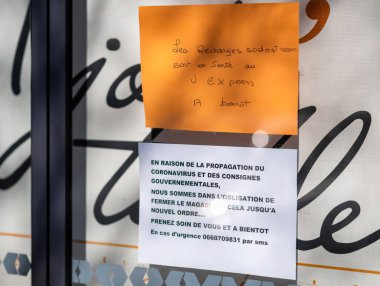 Les Recharges sodastream
sont en vente au
U express
A bientôt
EN RAISON DE LA PROPAGATION DU
CORONAVIRUS ET DES CONSIGNES
GOUVERNEMENTALES,
NOUS SOMMES DANS L'OBLIGATION DE
FERMER LE MAGASIN CELA JUSQU'A
NOUVEL ORDRE....
PRENEZ SOIN DE VOUS ET A BIENTOT
En cas d'urgence 0660709831 par sms